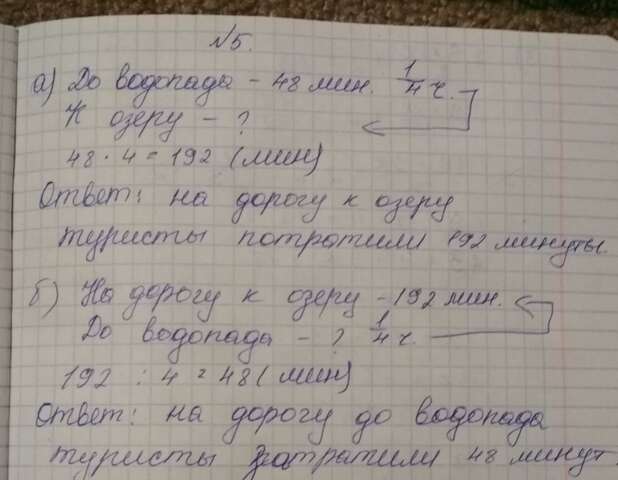 №5.
а) До водопада - 48 мин. 1/4 ч.
К озеру - ?
48 · 4 = 192 (мин)
Ответ: на дорогу к озеру
туристы потратили 192 минуты
б) На дорогу к озеру - 192 мин.
До водопада - ? 1/4 ч.
192 : 4 = 48 (мин)
Ответ: на дорогу до водопада
туристы затратили 48 минут.